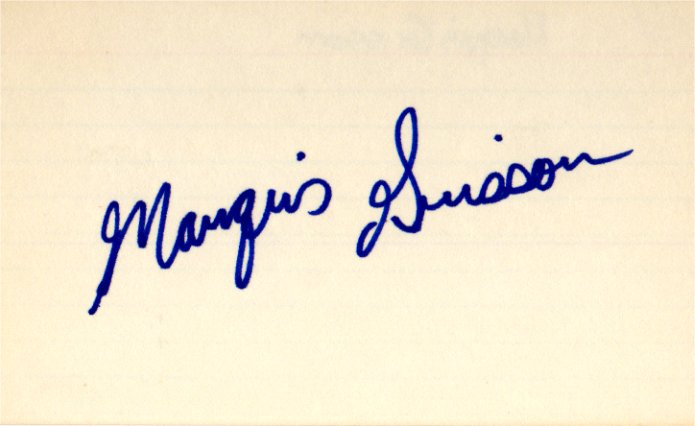 Marquis Grissom